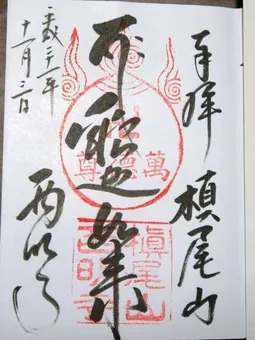 奉拝 槇尾山
如来
西明寺
平成二十一年
十一月三日
萬徳
尊
槇尾山
西明寺